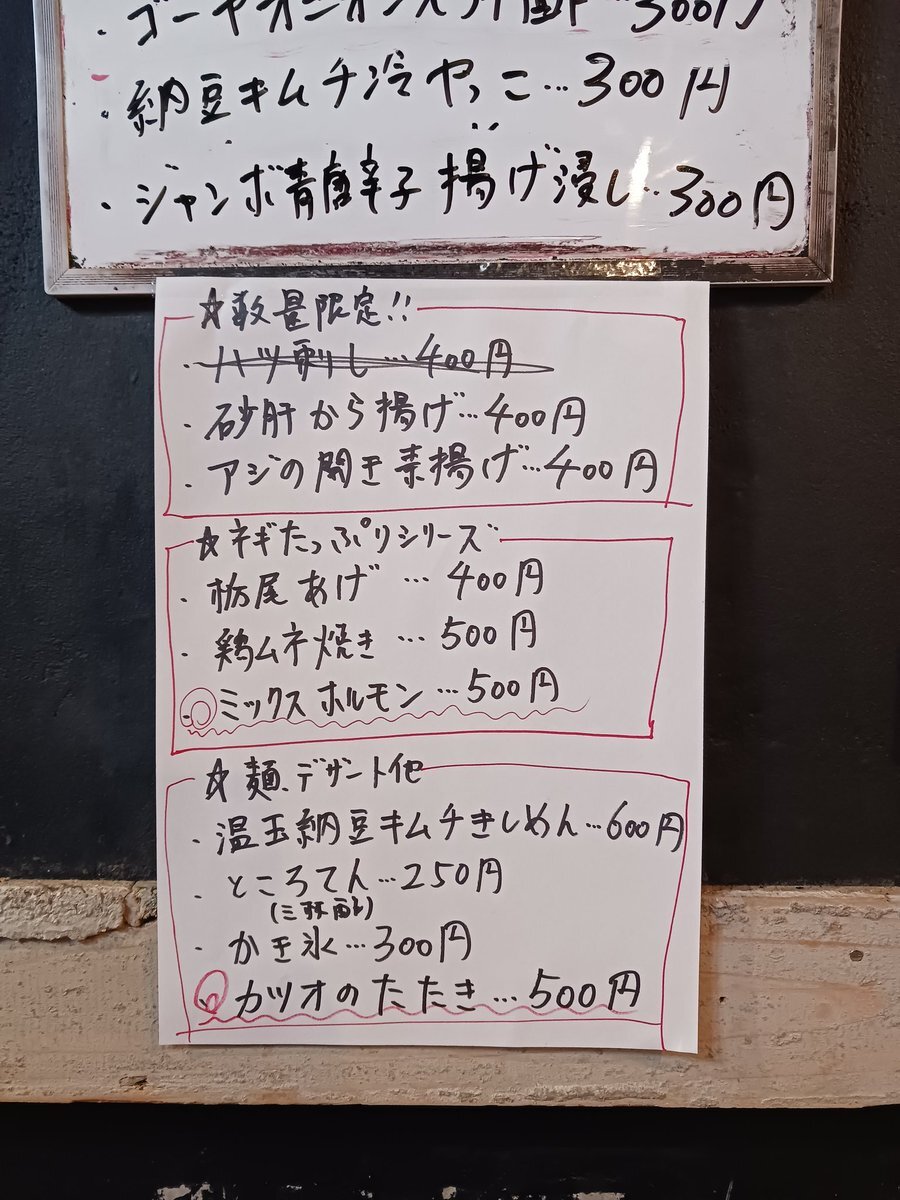 ・ゴーヤオニオンスライス…300円
・納豆キムチ冷やっこ…300円
・ジャンボ青唐辛子揚げ浸し…300円
☆数量限定!!
・ハツ刺し…400円
・砂肝から揚げ…400円
・アジの開き素揚げ…400円
☆ネギたっぷりシリーズ
・栃尾あげ…400円
・鶏ムネ焼き…500円
・ミックスホルモン…500円
☆麺、デザート他
・温玉納豆キムチきしめん…600円
・ところてん…250円
(三杯酢)
・かき氷…300円
・カツオのたたき…500円